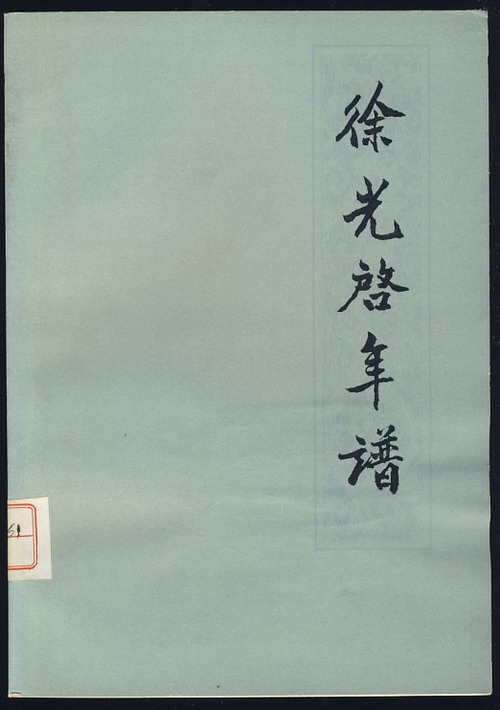 徐光啓年譜